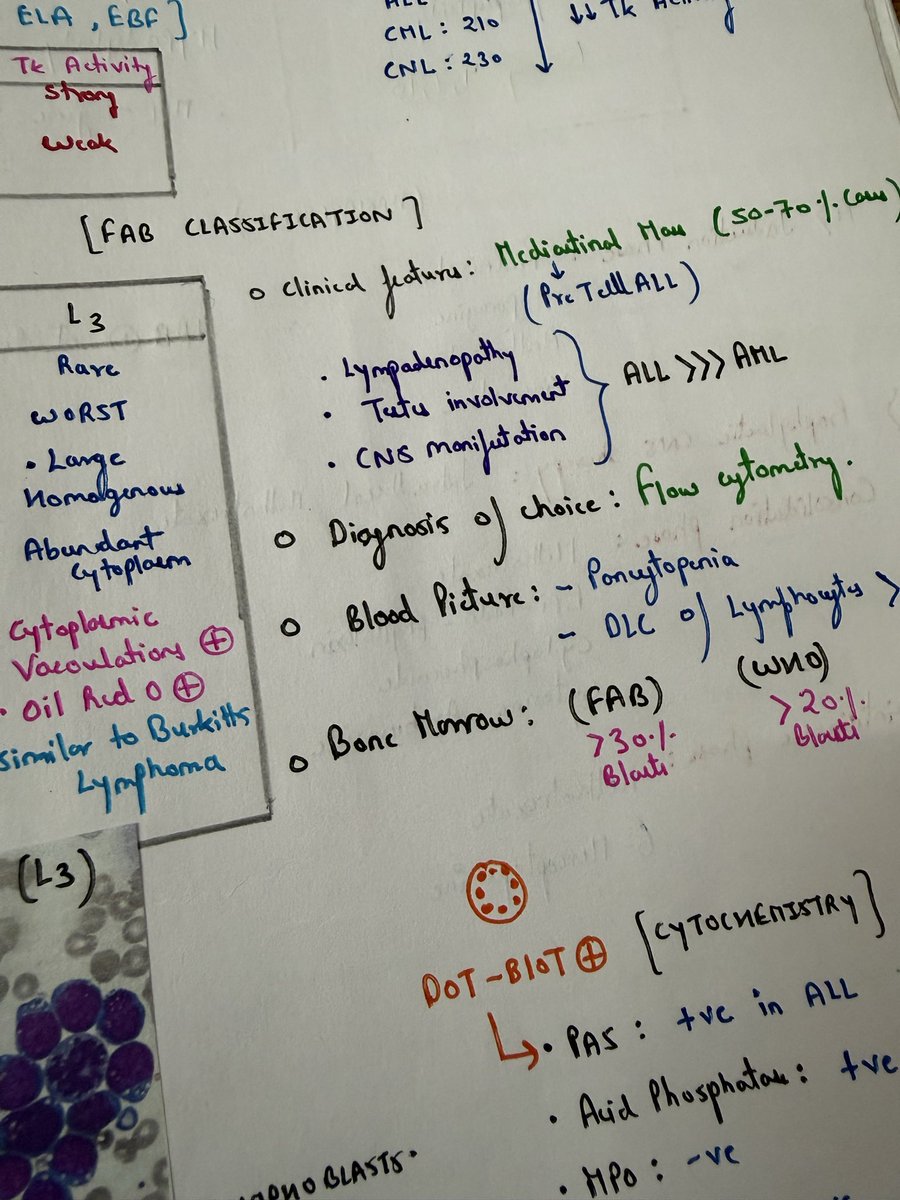 ELA, EBF]
CML : 210
CNL : 230
↓↓ Tk
Tk Activity
Strong
Weak
[FAB CLASSIFICATION]
L3
Rare
WORST
• Large
Homogenous
Abundant
Cytoplasm
Cytoplasmic
Vacoulations ⊕
• Oil Red O ⊕
Similar to Burkitts
Lymphoma
(L3)
o Clinical features : Mediastinal Mass (50-70% Cases)
↓
(Pre T cell ALL)
• Lympadenopathy
• Testis involvement
• CNS manifestation
ALL >>> AML
o Diagnosis of choice : Flow cytometry.
o Blood Picture : - Pancytopenia
- DLC of Lymphocytes >
o Bone Marrow : (FAB) (WHO)
>30% >20%
Blasts Blasts
DOT-BLOT ⊕ [CYTOCHEMISTRY]
• PAS : +ve in ALL
• Acid Phosphatase : +ve
• MPO : -ve
BLASTS.